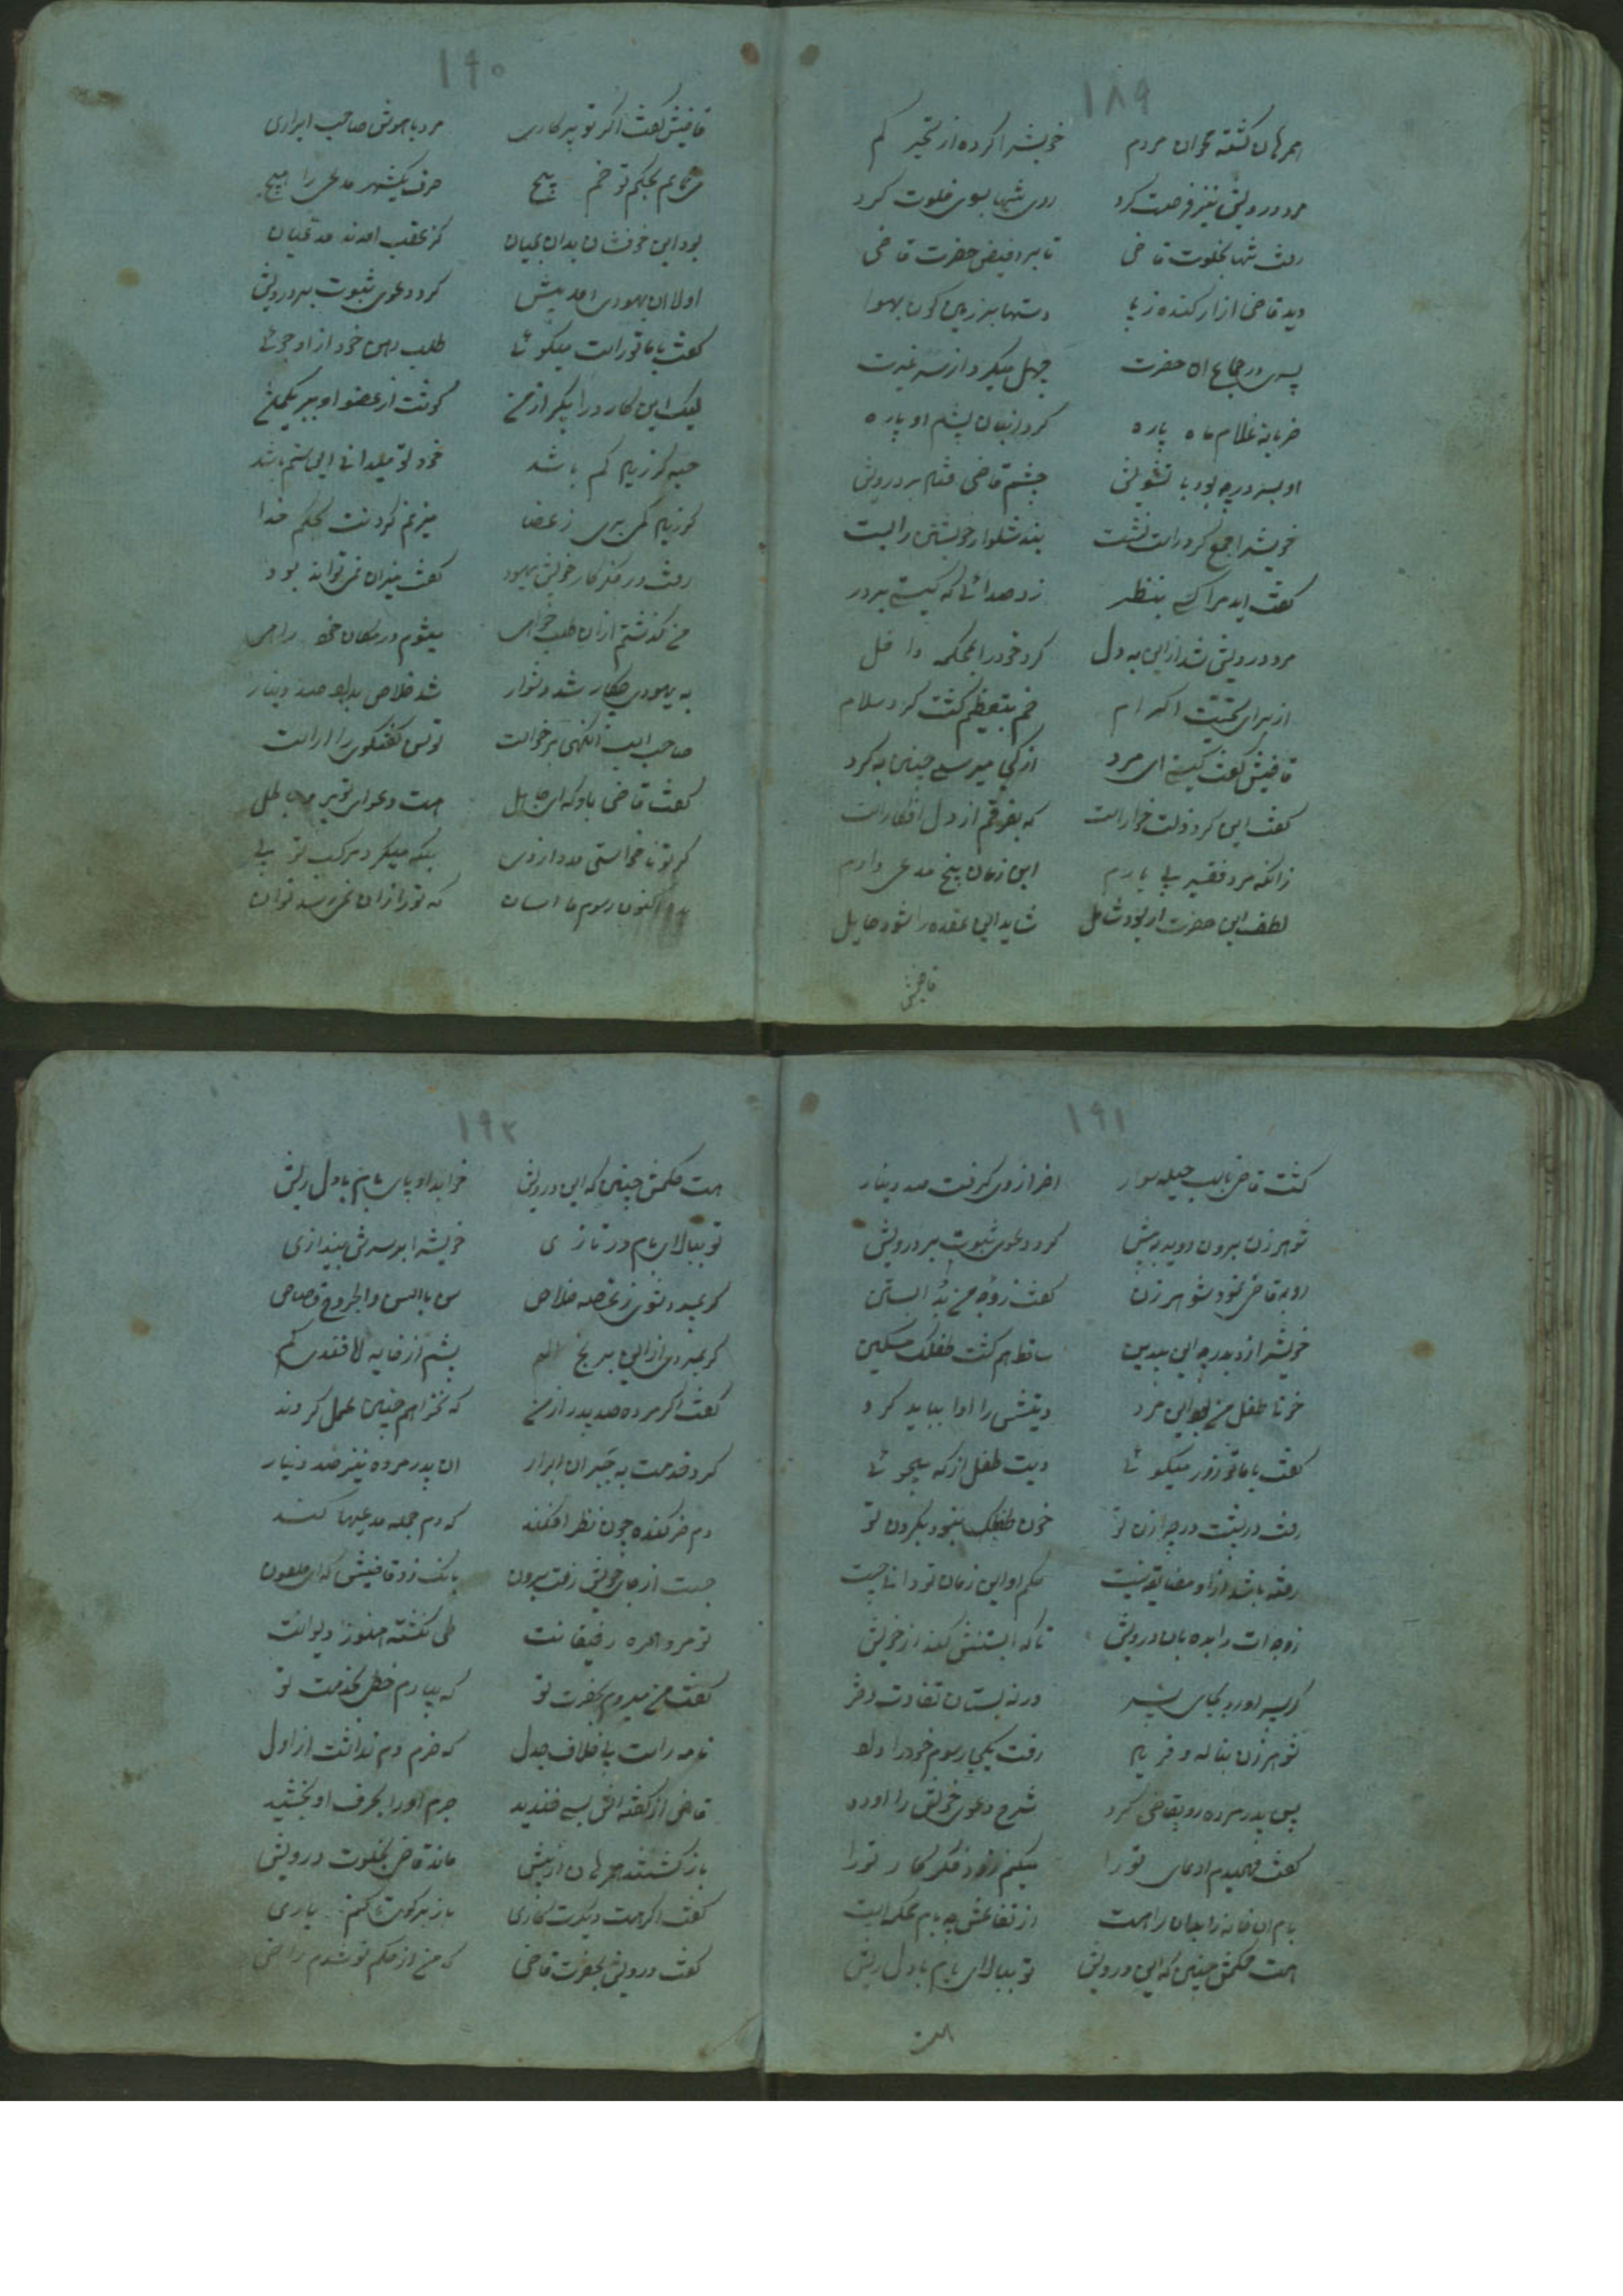 ۱۸۹
همرهان گشته محوان مردم خویش را کرده از تحیر گم
مرد درویش نیز فرصت کرد روی تنها بسوی خلوت کرد
رفت تنها بخلوت قاضی تا برد فیض حضرت قاضی
دید قاضی ازار کنده ز پا دستها بر زمین کون بهوا
پسری در جماع آن حضرت میکرد از سر غیرت
غلام ماه پاره کرد او پاره
او بسر در چه بود با تشویش چشم قاضی فتاد بر درویش
خویش را جمع کرد راست نشست بند شلوار خویشتن را بست
گفت آید مرا کسی بنظر زد صدائی که کیستی بر در
مرد درویش شد ازین به دل کرد خود را بمحکمه داخل
از برای تحیت اکرام خم بتعظیم گشت کرد سلام
قاضیش گفت کیستی ای مرد از کجا میرسی چنین به گرد
گفت این کرد ذلت خوار است که بفرقم از دل افکار است
زانکه مرد فقیر بی یارم این زمان پنج مدعی دارم
لطف این حضرت ار بود شامل شاید این عقده را شود حایل
قاضیش
۱۹۰
قاضیش گفت اگر تو پر کاری مرد با هوش صاحب ابراری
می نمایم بحکم تو خم پیچ حرف یکشهر مدعی را هیچ
بود این حرفشان بدان بمیان کز عقب آمدند مدعیان
اولا آن یهودی آمد پیش کرد دعوی ثبوت بر درویش
گفت با ما تو راست میگوئی طلب رهن خود از او جوئی
لیک این کار را مگر از من گوشت از عضو او ببر یکمن
حبه گر زیاد کم باشد خود تو میدانی این ستم باشد
گر زیاد کم بری ز عضا میزنم گردنت بحکم خدا
رفت در فکر کار خویش یهود گفت میزان نمی تواند بود
من گذشتم ازان طلب خواهی میشوم در مکان خود راهی
به یهودی چو کار شد دشوار شد خلاص بداد صد دینار
صاحب اسب آنگهی برخاست توسن گفتگوی را آراست
گفت قاضی باو که ای جاهل هست دعوای تو بر ما باطل
گر تو نا خواستی مدد از وی بلکه میکرد مرکب تو پی
بده اکنون رسوم ما آسان که تو را زان نمی رسد توان
۱۹۱
گشت قاضی باسب حیله سوار آخر از وی گرفت صد دینار
شوهر زن برون دوید ز پیش کرد دعوی ثبوت بر درویش
رو به قاضی نمود شوهر زن گفت زوجه من بد آبستن
خویش را زد بدرچه این بیدین ساقط هم گشت طفلک مسکین
خونها طفل من بود این مرد دیتش را ادا بباید کرد
گفت با ما تو زور میگوئی دیت طفل از که میجوئی
رفت در پشت درچه آن زن تو خون طفلک بخود بگردن تو
رفته باشد ازو مضایقه نیست حکم او این زمان تو دانی چیست
زوجه ات را بده باین درویش تا که آبستنش کند از خویش
گر پسر آورد بجای پسر ورنه بستان تفاوت دختر
شوهر زن بناله و فریاد رفت یکجا رسوم خود را داد
پس پدر مرده رو بقاضی کرد شرح دعوی خویش را آورد
گفت فهمیدم ادعای تو را میکنم زود فکر کار تو را
بام آن خانه را بجا راه است از تفاعش چه بام محکمه است
هست حکمش چنین که این درویش تو ببالای بام با دل ریش
هست
۱۹۲
هست حکمش چنین که این درویش خوابد او پای بام با دل ریش
تو ببالای بام در تازی خویش را بر سرش بیندازی
گر بمیرد شوی ز غصه خلاص سن بالسن والجروح قصاص
گر نمیرد ازین برنج الم بشم از فایه لا فقدی کم
گفت اگر مرده صد پدر از من که نخواهم چنین عمل کردن
کرد خدمت به جبر آن ابرار آن پدر مرده نیز صد دینار
دم خر کنده چون نظر افکند که دم جمله مدعیها کند
جست از جای خویش رفت برون بانک زد قاضیش که ای ملعون
تو مرو همره رفیقانت طی نگشته هنوز دیوانت
گفت من میروم بحضرت تو که بیارم خطی بخدمت تو
نامه راست بی خلاف جدل که خرم دم نداشت از اول
قاضی از گفته اش بسی خندید جرم او را بحرف او بخشید
باز گشتند همرهان از پیش ماند قاضی بخلوت درویش
گفت اگر هست دیگرت کاری باز برگوی تا کنم یاری
گفت درویش بحضرت قاضی که من از حکم تو شدم راضی